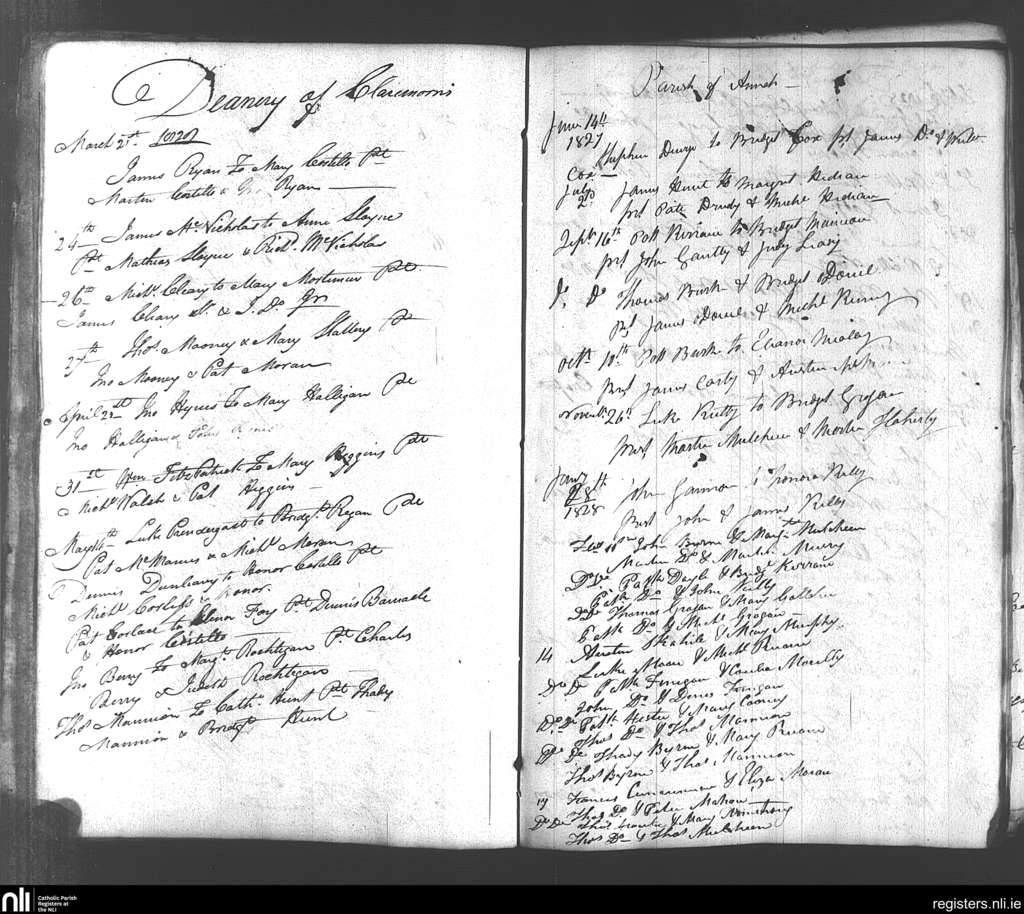 Deanery of Claremorris
March 2st. 1820
James Ryan To Mary Costello Pt
Martin Costello & Jno Ryan
24th James Mc Nicholas to Anne Slayne
Pt Mathias Slayne & Richd. McNicholas
26th Michl. Cleary to Mary Mortimer Pt
James Cleary Sr. & J. Do. Jr
27th Thos Mooney & Mary Slattery Pt
Jno Mooney & Pat Moran
April 2st Jno Hynes To Mary Halligan Pt
Jno Halligan &
31st Wm Fitz Patrick To Mary Higgins Pt
Michl Walsh & Pat Higgins
May 14th Luke Prendergast to Bridgt. Regan Pt
Pat McManus & Michl Moran
Dennis Dunleavy to Honor Costello Pt
Michl Corless & Honor
Pat Corlace to Elenor Foy Pt Dennis Barnacle
& Honor Costello
Jno Berry To Margt. Rochtigan Pt. Charles
Berry & Judeth Rochtigan
Thos Mannion To Cathe. Hunt Pt Thady
Mannion & Bridgt Hunt
Parish of Annah
June 14th
1827
Stephen to Bridget Cox prt James Do. & Walter
Cox
July
2d James Hunt to Margret Hedian
prt Patt Drudy & Michl Hedian
Septr 16th Patt Kirrane to Bridget
prt John Gantly & Judy Leary
Do Do Thomas Burke & Bridget oDonel
prt James oDonel & Michl
Octr 10th Patt Burke to Eleanor
prst James Carty & Austin
Novembr. 26th Luke to Bridget Grogan
prst Martin Mulcheen & Martin Flaherty
Jany
28th
1828 John Gannon & Honora Kelly
prst John & James Kelly
John Byrne & Margt. Mulcheen
Martin Do & Martin Murry
Do Do Pattk Doyle & Bridgt Kirrane
Pattk Do & John Kelly
Do Do Thomas Grogan & Mary
Pattk Do & Michl Grogan
14 Austin & Mary Murphy
Luke Moran & Michl Ruane
Do Do Pattk Finegan & Cecilia Morally
John Do & Denis Finegan
Do Do Pattk Hester & Mary Cooney
Thos Do & Thos Mannion
Do Do Thady Byrne & Mary Ruane
Thos Byrne & Thos Mannion
17 Francis Cunnane & Eliza Moran
Thos Do & Peter Mahon
Do Do & Mary Armstrong
Thos Do & Thos Mulcheen
nli Catholic Parish
Registers at
the NLI
registers.nli.ie